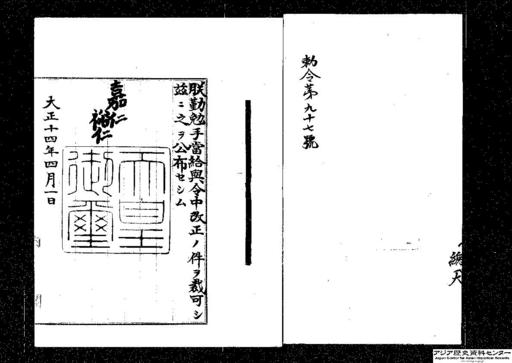 勅令第九十七號
朕勤勉手當給與令中改正ノ件ヲ裁可シ
茲ニ之ヲ公布セシム
嘉仁
裕仁
天皇御璽
大正十四年四月一日
アジア歴史資料センター
Japan Center for Asian Historical Records